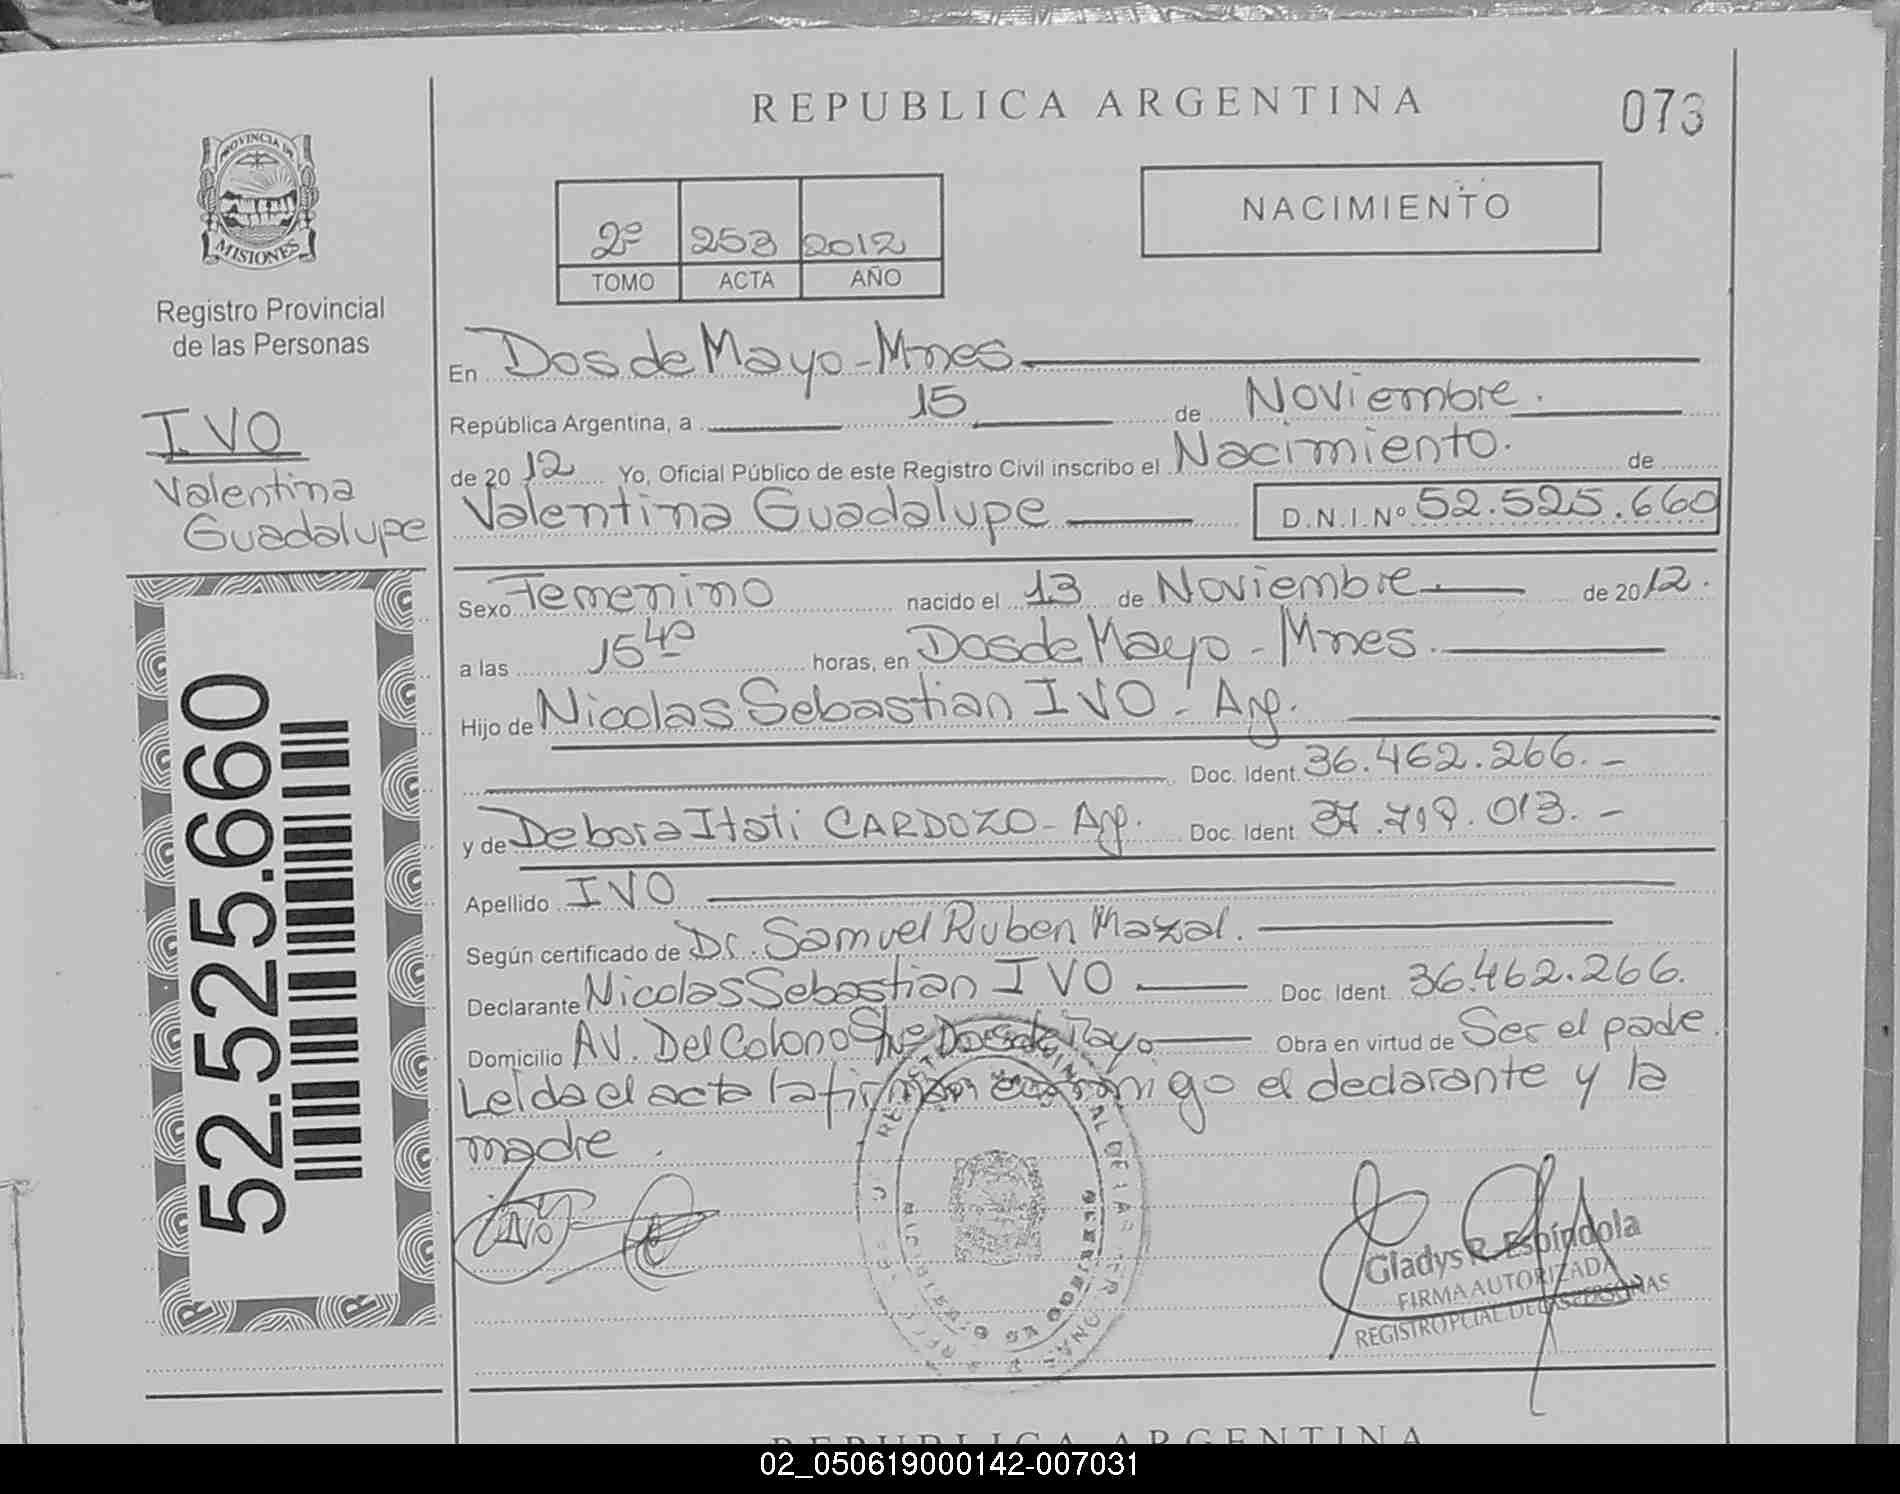 REPUBLICA ARGENTINA
073
PROVINCIA DE
MISIONES
Registro Provincial
de las Personas
IVO
Valentina
Guadalupe
52.525.660
2º 253 2012
TOMO ACTA AÑO
NACIMIENTO
En Dos de Mayo - Mnes.
República Argentina, a 15 de Noviembre.
de 2012 Yo, Oficial Público de este Registro Civil inscribo el Nacimiento. de
Valentina Guadalupe D.N.I.Nº 52.525.660
Sexo Femenino nacido el 13 de Noviembre. de 2012.
a las 15 40 horas, en Dos de Mayo - Mnes.
Hijo de Nicolas Sebastian IVO - Arg.
Doc. Ident. 36.462.266.-
y de Debora Itati CARDOZO - Arg. Doc. Ident. 37.719.013.-
Apellido IVO
Según certificado de Dr. Samuel Ruben Mazal.
Declarante Nicolas Sebastian IVO Doc. Ident. 36.462.266.
Domicilio AV. Del Colono Dos de Mayo Obra en virtud de Ser el pade.
Leida el acta la firman conmigo el declarante y la
madre.
Gladys R. Espíndola
FIRMA AUTORIZADA
REGISTRO PCIAL. DE LAS PERSONAS
REPUBLICA ARGENTINA
02_050619000142-007031